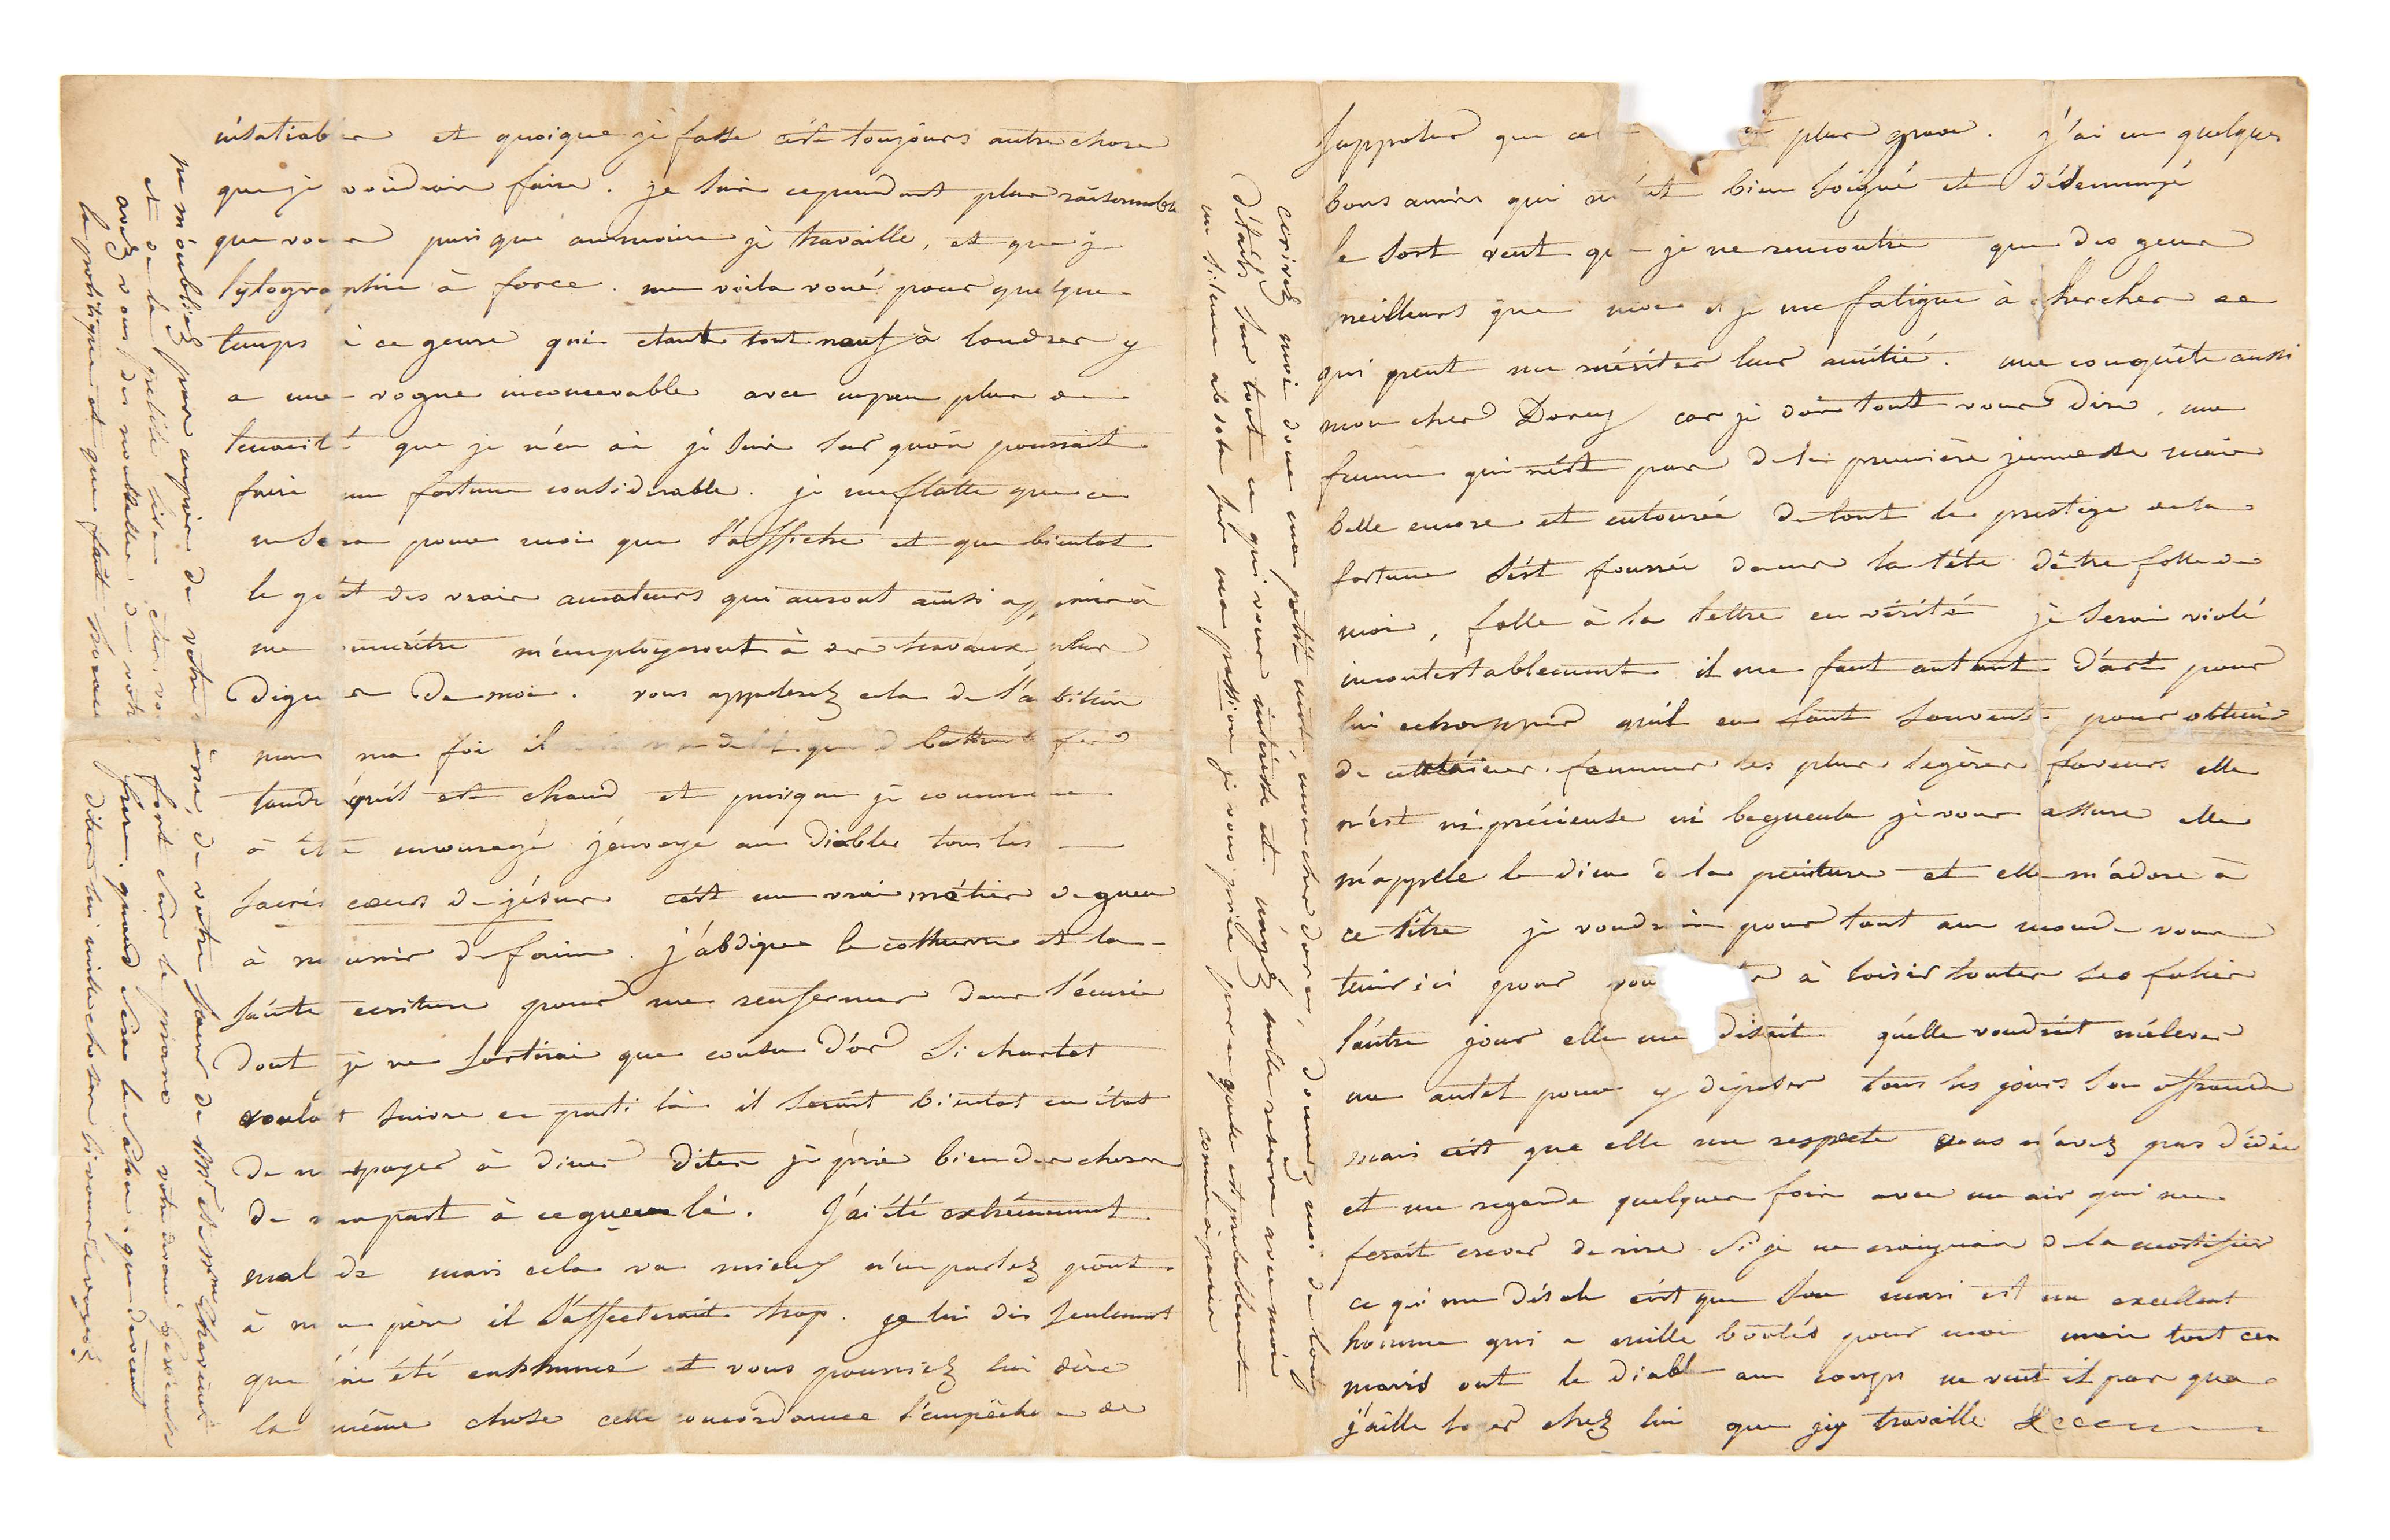 insatiable et quoique je fasse c'est toujours autre chose
que je voudrois faire. je suis cependant plus raisonnable
que vous puisque aumoins je travaille, et que je
lytographie à force. me voila voué pour quelque
temps à ce genre qui étant tout neuf à londres y
a une vogue inconcevable avec un peu plus de
tenacité que je n'en ai je suis sur qu'on pourrait
faire une fortune considérable. je me flatte que ce
ne sera pour moi que l'affiche et que bientot
le goût des vrais amateurs qui auront ainsi appris à
me connaitre m'employeront à des travaux plus
dignes de moi. vous appelerez cela de l'ambition
mais ma foi il
tandis qu'il est chaud et puisque je commence
à être encouragé j'envoye au diable tous les
sacrés coeurs de jésus c'est un vrai métier de gueux
à mourir de faim. j'abdique le cothurne et la
sainte ecriture pour me renfermer dans l'écurie
dont je ne sortirai que cousu d'or si charlet
voulait suivre ce parti là il serait bientot en état
de me payer à diner dites je prie bien des choses
de ma part à ce gueux là. J'ai été extrêmement
malade mais cela va mieux n'en parlez point
à mon père il s'affecterait trop. je lui dis seulement
que j'ai été enrhumé et vous pourriez lui dire
la même chose cette concordance l'empêchera de
ne m'oubliez pas auprès de votre mère, de votre soeur de Mr et de Mme Chavine
et de la petite chez vous
fort sur le piano votre devoué Gericault
avez vous des nouvelles de votre
frère. quand sera le salon. que devient
la politique et que fait horace
dites lui mille choses si vous le voyez
supposer que cela plus grave. j'ai eu quelques
bons amis qui m'ont bien soigné et désennuyé
le sort veut que je ne rencontre que des gens
meilleurs que moi et je me fatigue à chercher ce
qui peut me mériter leur amitié. une conquête aussi
mon cher Dorcy car je dois tout vous dire, une
femme qui n'est pas de la première jeunesse mais
belle encore et entourée de tout le prestige de la
fortune s'est fourrée dans la tête d'être folle de
moi, folle à la lettre en vérité je serai violé
incontestablement il me faut autant d'art pour
lui echapper qu'il en faut souvent pour obtenir
de certaines femmes les plus légères faveurs elle
n'est ni précieuse ni begueule je vous assure elle
m'appelle le dieu de la peinture et elle m'adore à
ce titre je voudrais pour tout au monde vous
tenir ici pour vous à loisir toutes ses folies
l'autre jour elle me disait qu'elle voudrait m'élever
un autel pour y déposer tous les jours son offrande
mais c'est que elle me respecte vous n'avez pas d'idée
et me regarde quelques fois avec un air qui me
ferait crever de rire si je ne craignais de la mortifier
ce qui me désole c'est que son mari est un excellent
homme qui a mille bontés pour moi mais tout ces
maris ont le diable au corps ne veut il pas que
j'aille loger chez lui que j'y travaille &cccc
ecrivez moi donc un petit mot, mon cher dorcy, donnez moi de longs
détails sur tout ce qui vous intéresse et n'ayez nulle reserve avec moi
un silence absolu sur ma passion je vous prie